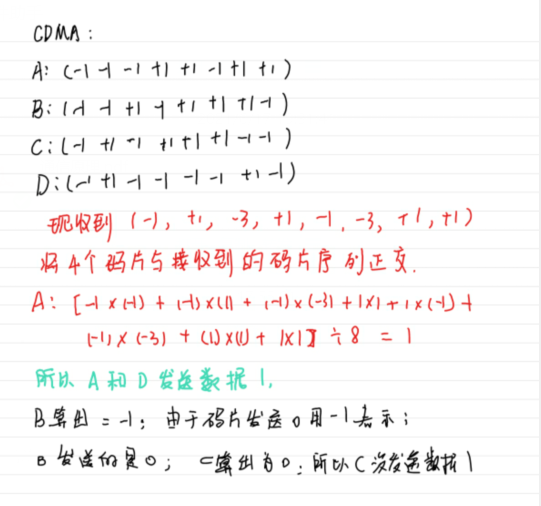 CDMA:
A: (-1 -1 -1 +1 +1 -1 +1 +1)
B: (-1 -1 +1 -1 +1 +1 +1 -1)
C: (-1 +1 -1 +1 +1 +1 -1 -1)
D: (-1 +1 -1 -1 -1 -1 +1 -1)
现收到 (-1, +1, -3, +1, -1, -3, +1, +1)
将4个码片与接收到的码片序列正交.
A: [-1×(-1) + (-1)×(1) + (-1)×(-3) + 1×1 + 1×(-1) +
(-1)×(-3) + (1)×(1) + 1×1] ÷ 8 = 1
所以 A 和 D 发送数据 1.
B算出 = -1; 由于码片发送 0 用 -1 表示;
B 发送的是 0; C算出为 0; 所以 C 没发送数据 1